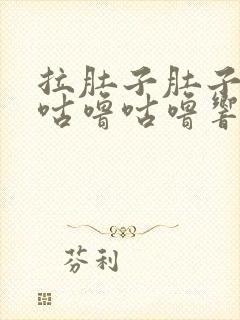 拉肚子肚子
咕噜咕噜響
芬利